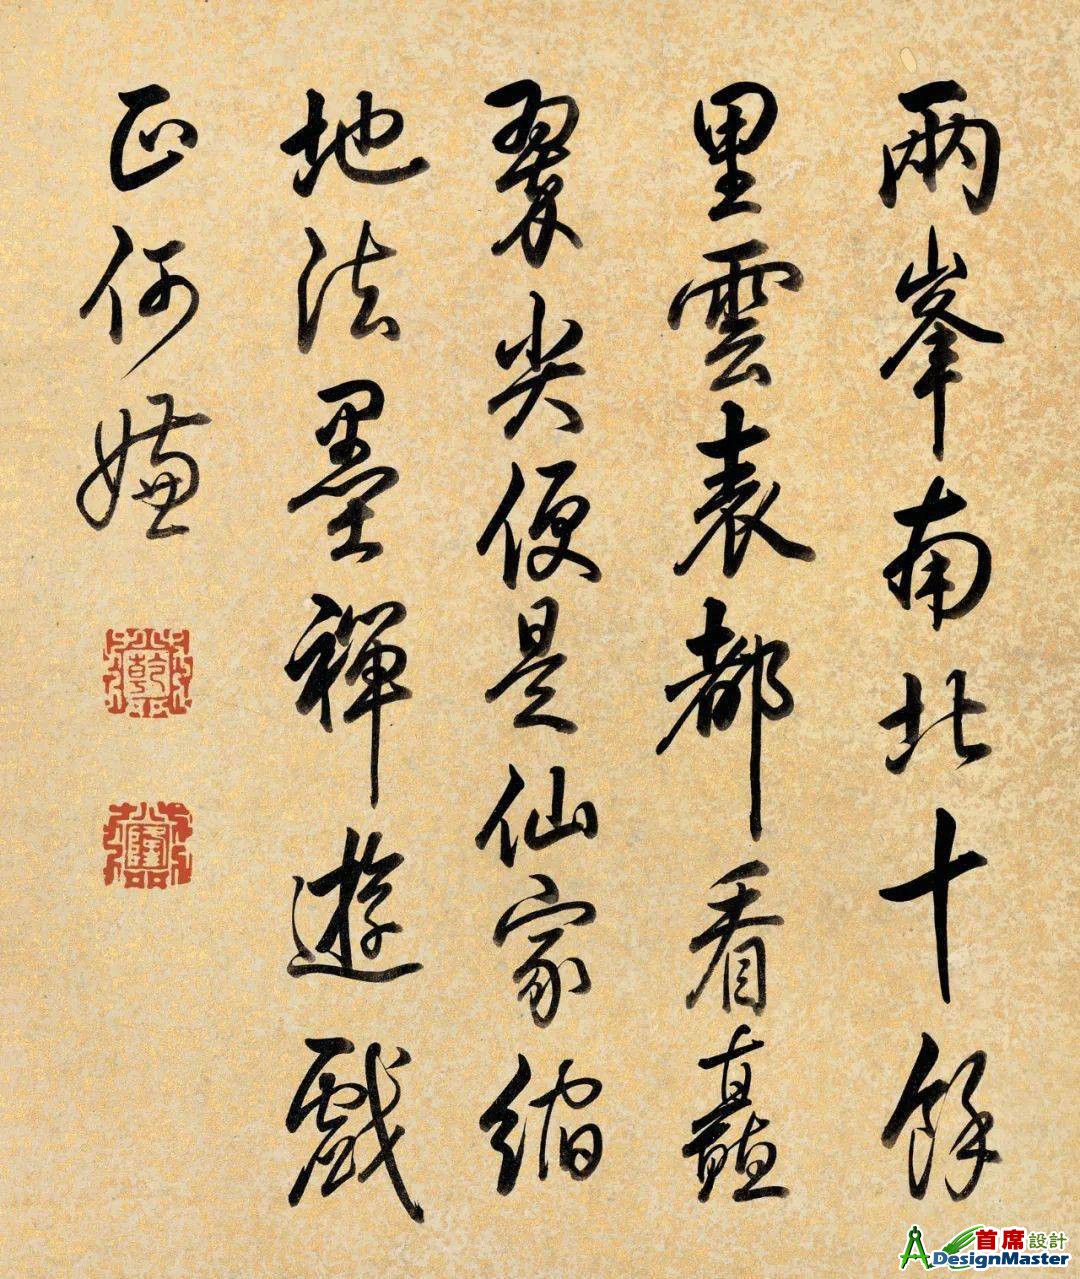 兩峯南北十餘
里雲表都看矗
翠尖便是仙家縮
地法墨禪遊戲
正何嫌
乾
隆
首席設計
DesignMaster